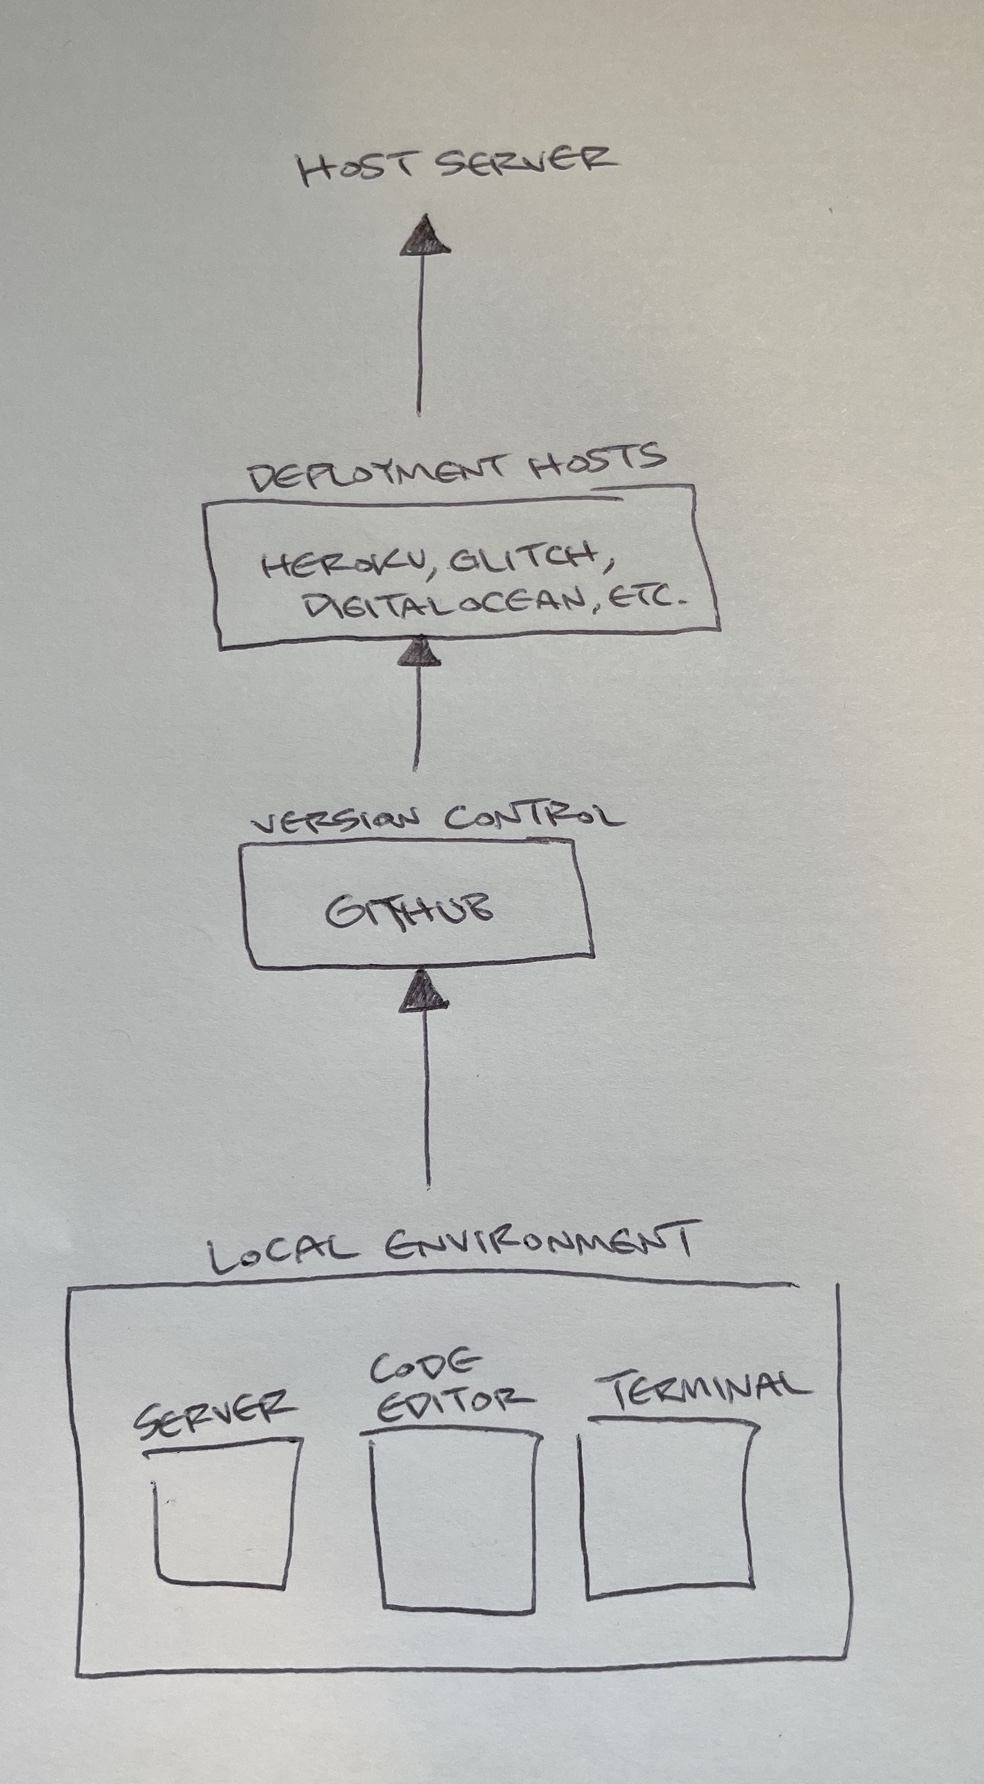 HOST SERVER
DEPLOYMENT HOSTS
HEROKU, GLITCH,
DIGITALOCEAN, ETC.
VERSION CONTROL
GITHUB
LOCAL ENVIRONMENT
SERVER
CODE
EDITOR
TERMINAL